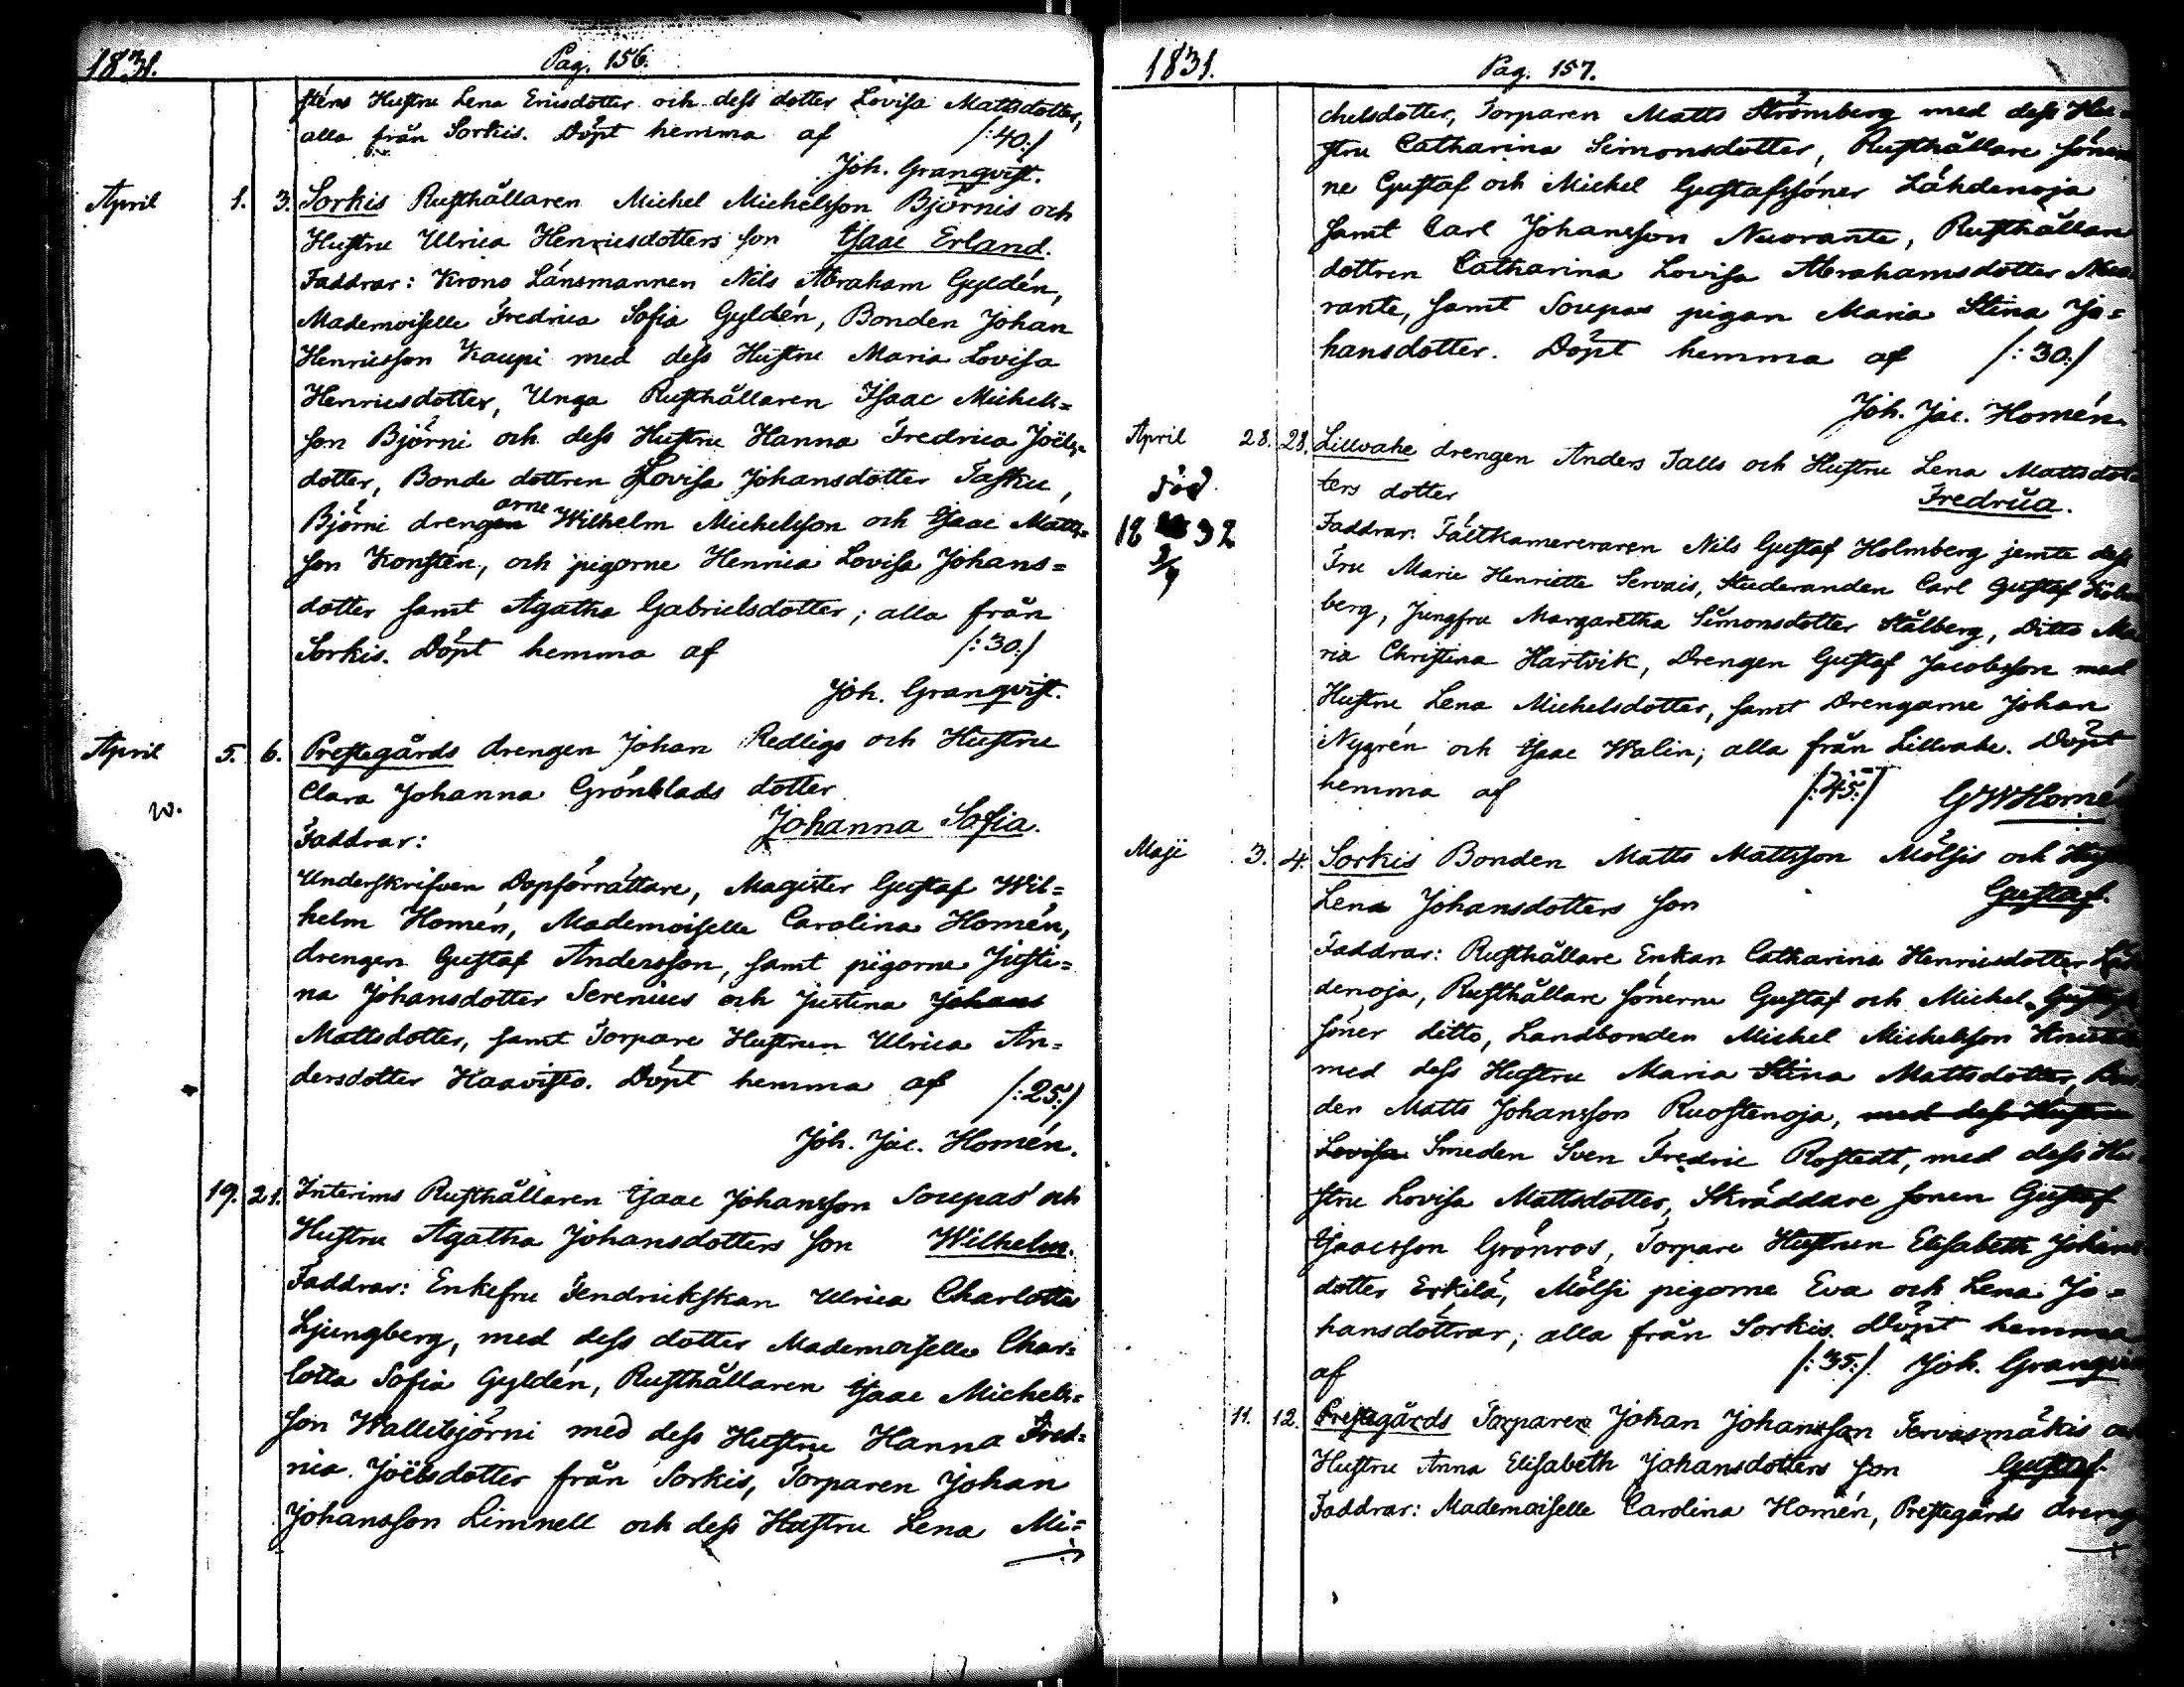 1831. Pag. 156.
sténs Hustru Lena Ericsdotter och dess dotter Lovisa Mattsdotter,
alla från Sorkis. Döpt hemma af /:40:/
Joh. Granqvist.
April 1. 3. Sorkis Rusthållaren Michel Michelsson Björnis och
Hustru Ulrica Henricsdotters son Isaac Erland.
Faddrar: Krono Länsmannen Nils Abraham Gyldén,
Mademoiselle Fredrica Sofia Gyldén, Bonden Johan
Henricsson Kaupi med dess Hustru Maria Lovisa
Henricsdotter, Unga Rusthållaren Isaac Michels=
son Björni och dess Hustru Hanna Fredrica Joëls=
dotter, Bonde dottren Lovisa Johansdotter Tasku,
Björni drengarne Wilhelm Michelsson och Isaac Matts=
son Konstén, och pigorne Henrica Lovisa Johans=
dotter samt Agatha Gabrielsdotter; alla från
Sorkis. Döpt hemma af /:30:/
Joh. Granqvist.
April 5. 6. Prestegårds drengen Johan Redligs och Hustru
Clara Johanna Grönblads dotter
w.
Johanna Sofia.
Faddrar:
Underskrifven Dopförrättare, Magister Gustaf Wil=
helm Homén, Mademoiselle Carolina Homén,
drengen Gustaf Andersson, samt pigorne Justi=
na Johansdotter Serenius och Justina Johans
Mattsdotter, samt Torpare Hustrun Ulrica An=
dersdotter Haavisto. Döpt hemma af /:25:/
Joh. Jac. Homén.
19. 21. Interims Rusthållaren Isaac Johansson Soupas och
Hustru Agatha Johansdotters son Wilhelm.
Faddrar: Enkefru Fendrickskan Ulrica Charlotta
Ljungberg, med dess dotter Mademoiselle Char=
lotta Sofia Gyldén, Rusthållaren Isaac Michels=
son Wallibjörni med dess Hustru Hanna Fred=
rica Joëlsdotter från Sorkis, Torparen Johan
Johansson Limnell och dess Hustru Lena Mi=
1831. Pag. 157.
chelsdotter, Torparen Matts Strömberg med dess Hu=
stru Catharina Simonsdotter, Rusthållare söner
ne Gustaf och Michel Gustafssöner Lähdenoja
samt Carl Johansson Nuorante, Rusthållare
dottren Catharina Lovisa Abrahamsdotter Nuo
rante, samt Soupas pigan Maria Stina Jo=
hansdotter. Döpt hemma af /:30:/
Joh. Jac. Homén.
April 28. 28. Lillvahe drengen Anders Talls och Hustru Lena Mattsdot
ters dotter Fredrica.
död
18 32
3/9
Faddrar: Fältkamereraren Nils Gustaf Holmberg jemte dess
Fru Marie Henriette Servais, Studeranden Carl Gustaf Holm
berg, Jungfru Margaretha Simonsdotter Stålberg, Ditto Ma
ria Christina Hartvik, Drengen Gustaf Jacobsson med
Hustru Lena Michelsdotter, samt Drengarne Johan
Nygrén och Isaac Walin; alla från Lillvahe. Döpt
hemma af /:45:/ GWHomé
Maji 3. 4. Sorkis Bonden Matts Mattsson Mölsis och
Lena Johansdotters son Gustaf.
Faddrar: Rusthållare Enkan Catharina Henricsdotter Läh
denoja, Rusthållare sönerne Gustaf och Michel Gustaf
söner ditto, Landbonden Michel Michelsson
med dess Hustru Maria Stina Mattsdotter, Bon
den Matts Johansson Ruostenoja, med dess Hustru
Lovisa Smeden Sven Fredric Rostedt, med dess Hu
stru Lovisa Mattsdotter, Skräddare sonen Gustaf
Isaacsson Grönros, Torpare Hustrun Elisabeth Johans
dotter Erkilä, Mölsi pigorne Eva och Lena Jo=
hansdottrar; alla från Sorkis. Döpt hemma
af /:35:/. Joh. Granqvi
11. 12. Prestegårds Torparen Johan Johansson Tervasmäkis
Hustru Anna Elisabeth Johansdotters son Gustaf.
Faddrar: Mademoiselle Carolina Homén, Prestegårds dreng